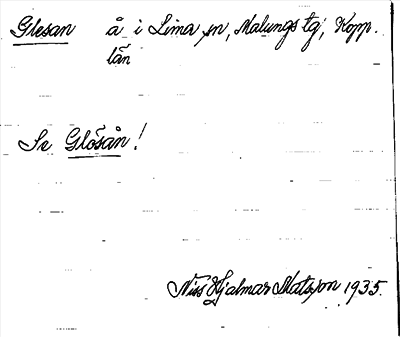 Glesan å i Lima sn, Malungs tg, Kopp.
län
Se Glösån!
Nils Hjalmar Matsson 1935.